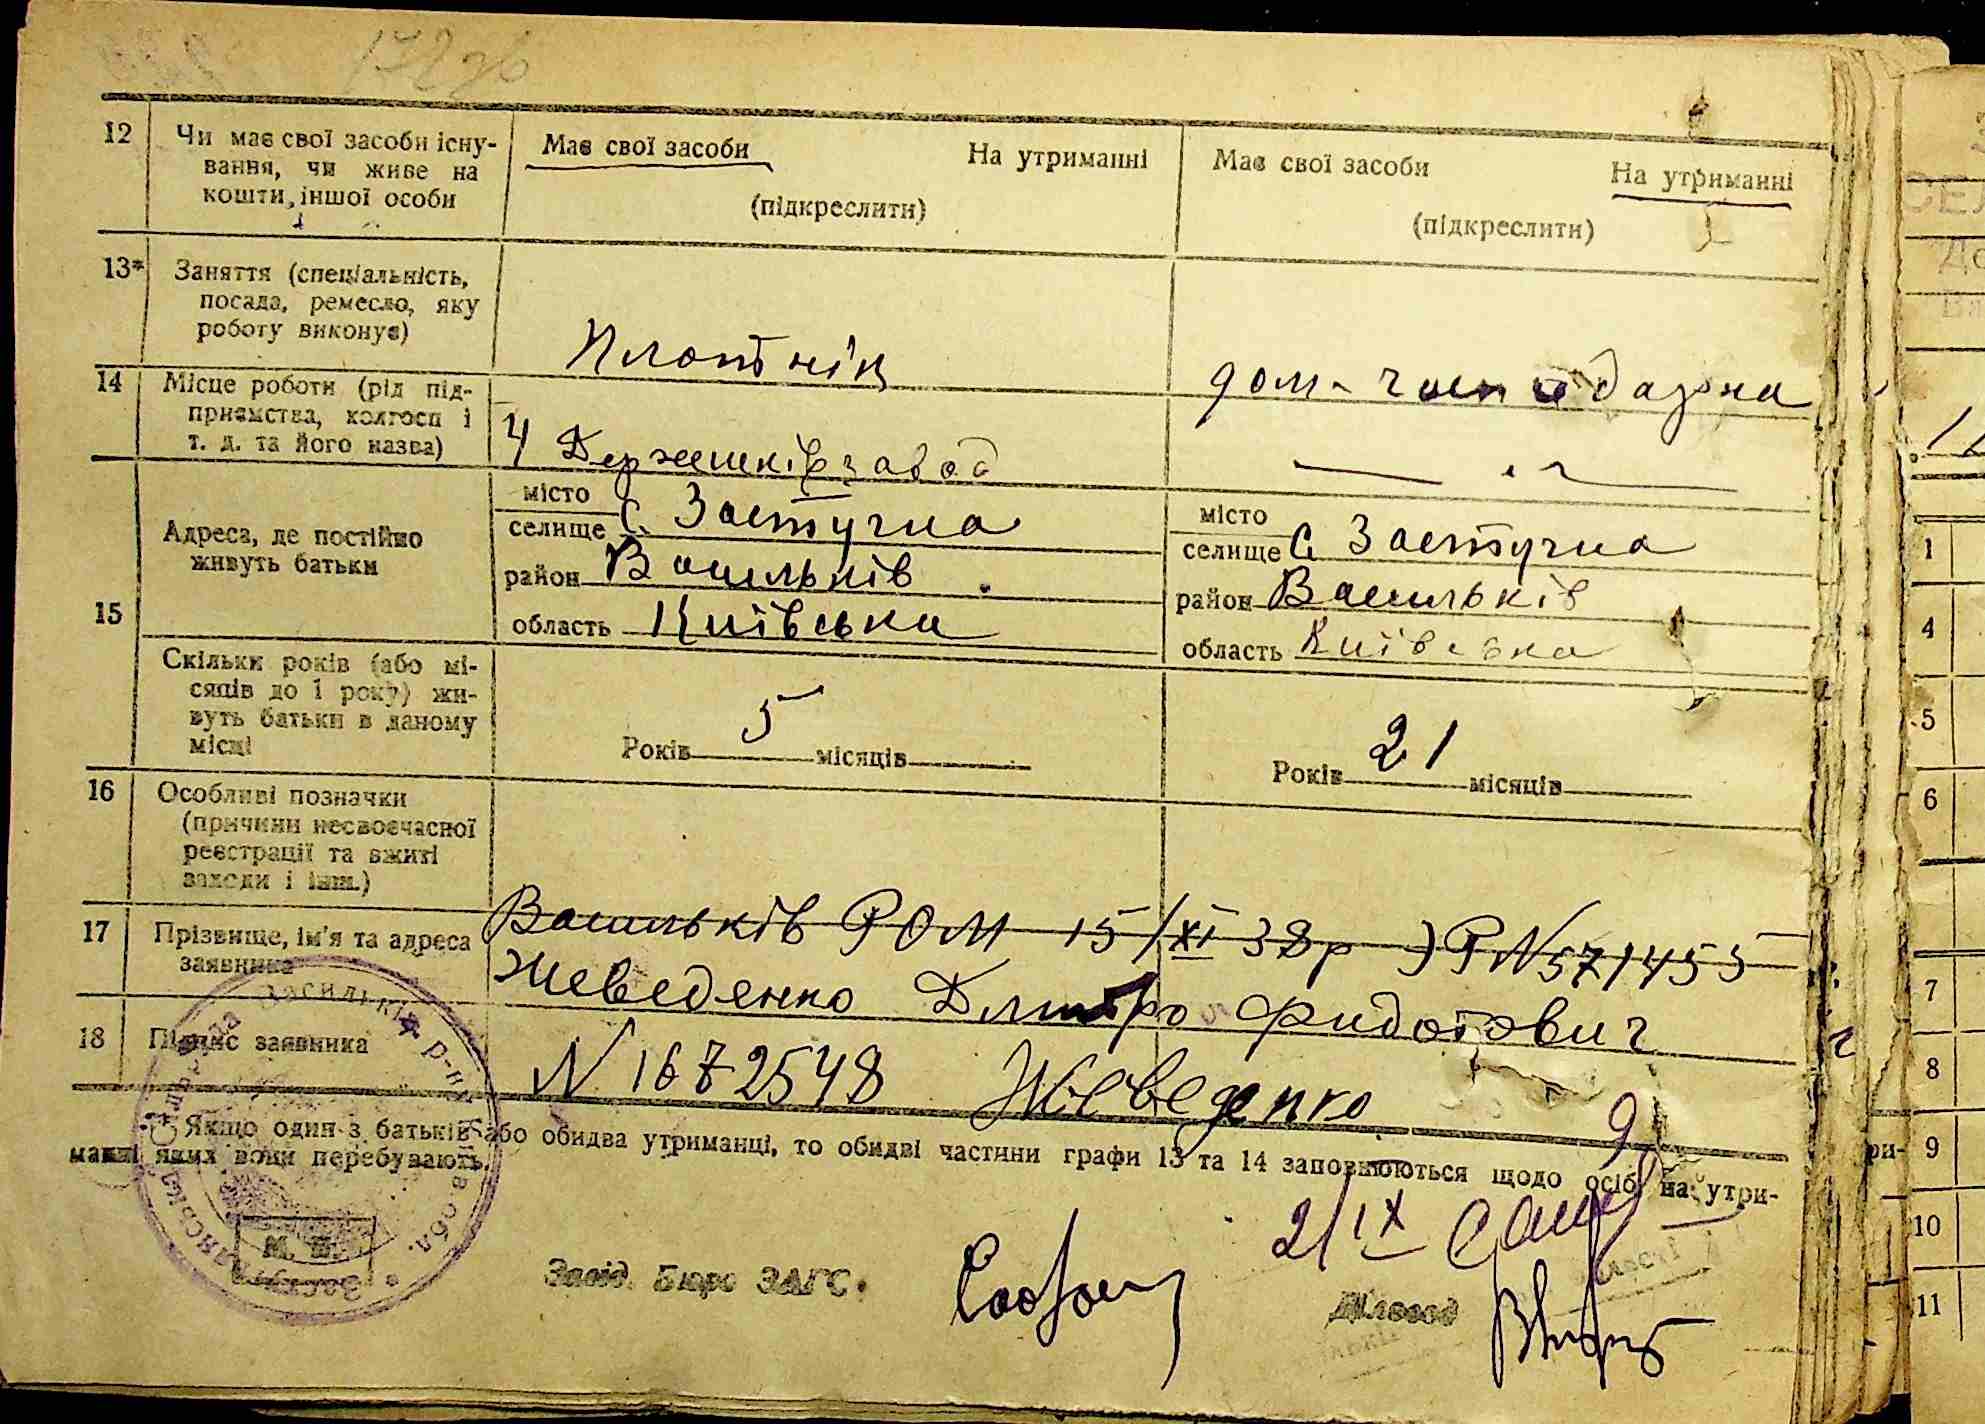 172 зв
12 Чи має свої засоби існу-
вання, чи живе на
кошти іншої особи
Має свої засоби На утриманні
(підкреслити)
Має свої засоби На утриманні
(підкреслити)
13* Заняття (спеціальність,
посада, ремесло, яку
роботу виконує)
Плотнік
дом-господарка
14 Місце роботи (рід під-
приємства, колгосп і
т. д. та його назва)
4 Держшкірзавод
15 Адреса, де постійно
живуть батьки
місто
селище с. Застугна
район Васильків
область Київська
місто
селище с. Застугна
район Васильків
область Київська
Скільки років (або мі-
сяців до 1 року) жи-
вуть батьки в даному
місці
Років 5 місяців
Років 21 місяців
16 Особливі позначки
(причини несвоєчасної
реєстрації та вжиті
заходи і інш.)
17 Прізвище, ім'я та адреса
заявника
Васильків РОМ 15/XI 38р ЭР N571455
Жеведенко Дмитро Фидотович
18 Підпис заявника
N 1672548 Жеведенко
Якщо один з батьків або обидва утриманці, то обидві частини графи 13 та 14 заповнюються щодо осіб, на утри-
манні яких вони перебувають.
М. П.
Завід. Бюро ЗАГС.
2/IX
Діловод
СЕЛ
1
4
5
6
7
8
9
10
11